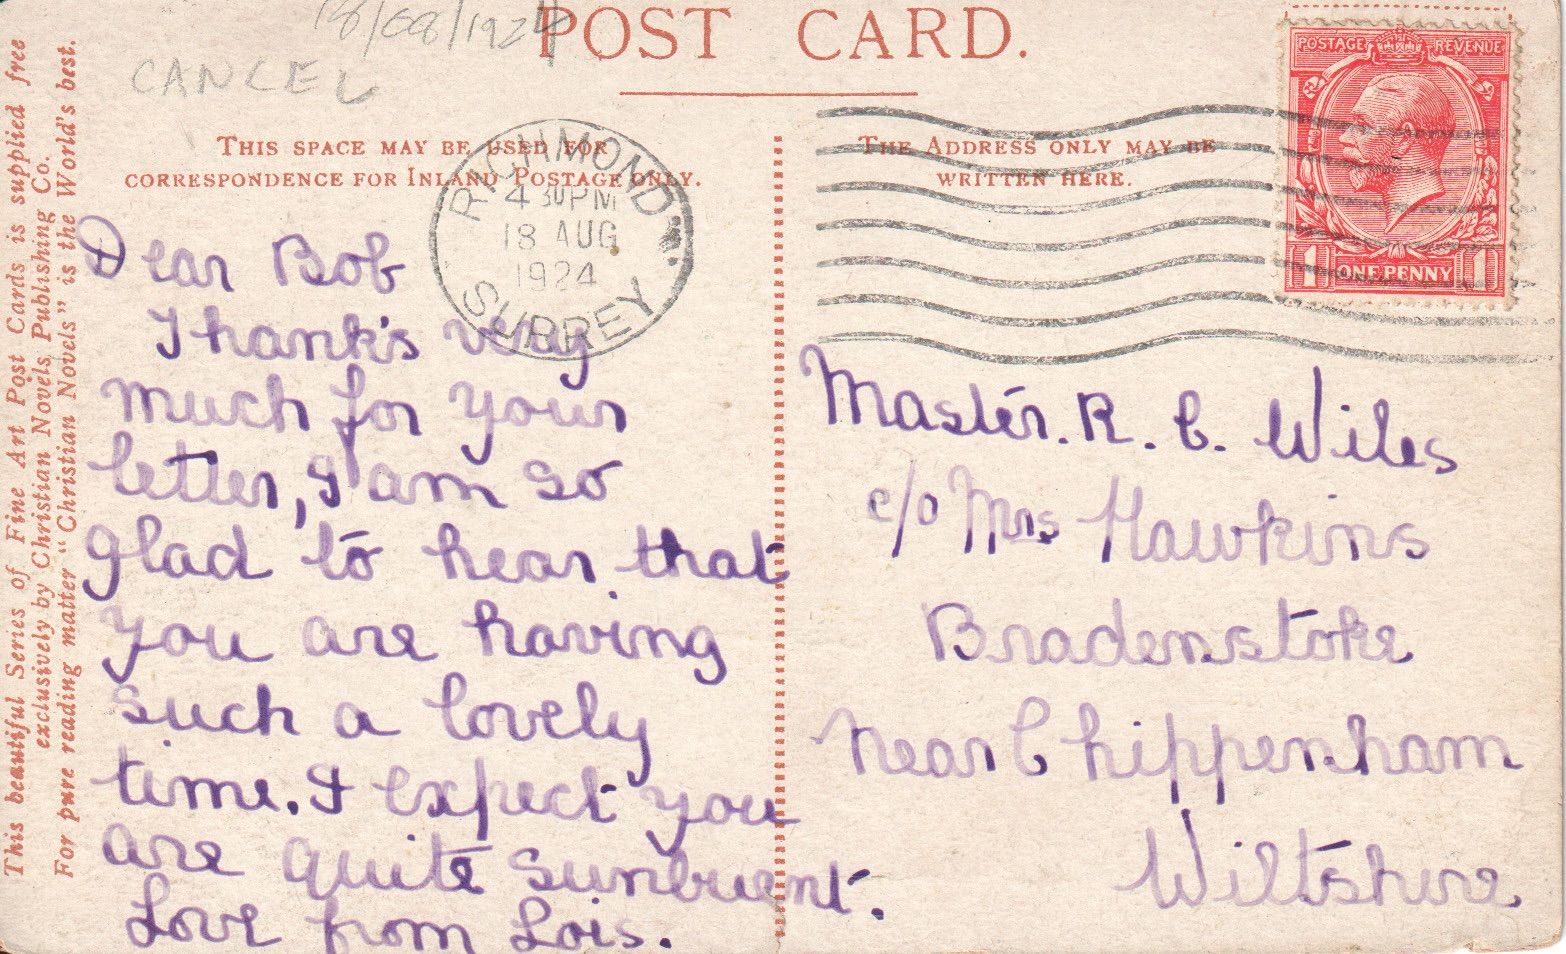 18/08/1924
CANCEL
POST CARD.
THIS SPACE MAY BE USED FOR
CORRESPONDENCE FOR INLAND POSTAGE ONLY.
THE ADDRESS ONLY MAY BE
WRITTEN HERE.
POSTAGE REVENUE
1 ONE PENNY 1
RICHMOND
4 30 PM
18 AUG
1924
SURREY
This beautiful Series of Fine Art Post Cards is supplied free
exclusively by Christian Novels Publishing Co.
For pure reading matter "Christian Novels" is the World's best.
Dear Bob
Thank's very
much for your
letter, I am so
glad to hear that
you are having
such a lovely
time. I expect you
are quite sunbuent.
Love from Lois.
Master. R. C. Wiles
c/o Mrs Hawkins
Bradenstoke
Near Chippenham
Wiltshire